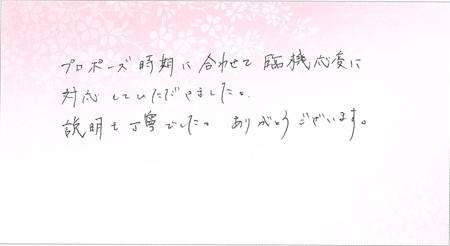 プロポーズ時期に合わせて臨機応変に
対応していただきました。
説明も丁寧でした。ありがとうございます。